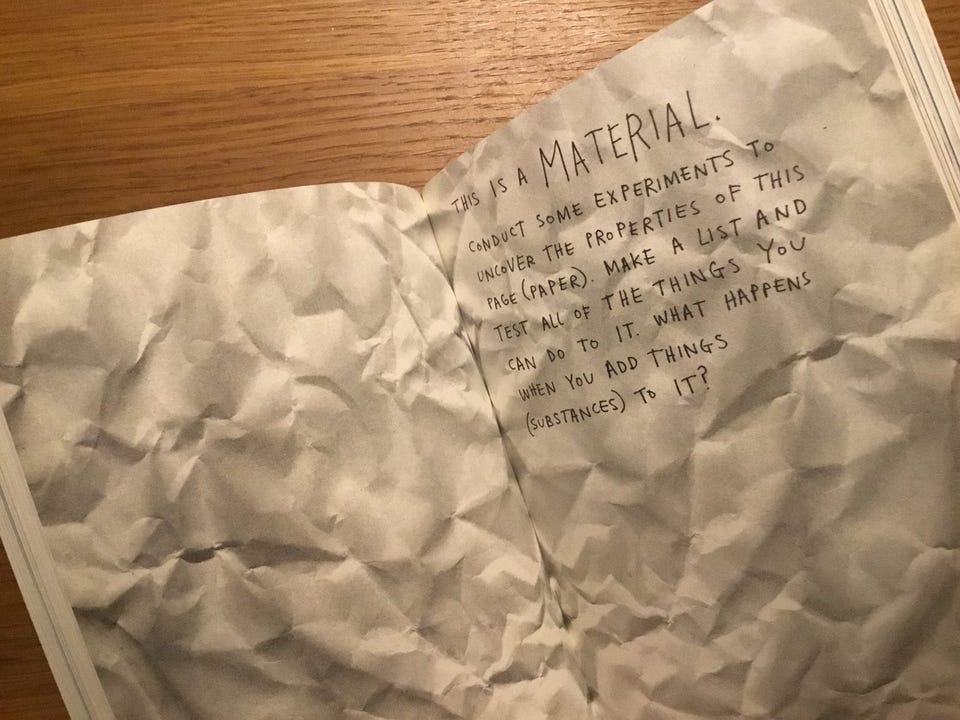 THIS IS A MATERIAL.
CONDUCT SOME EXPERIMENTS TO
UNCOVER THE PROPERTIES OF THIS
PAGE (PAPER). MAKE A LIST AND
TEST ALL OF THE THINGS YOU
CAN DO TO IT. WHAT HAPPENS
WHEN YOU ADD THINGS
(SUBSTANCES) TO IT?